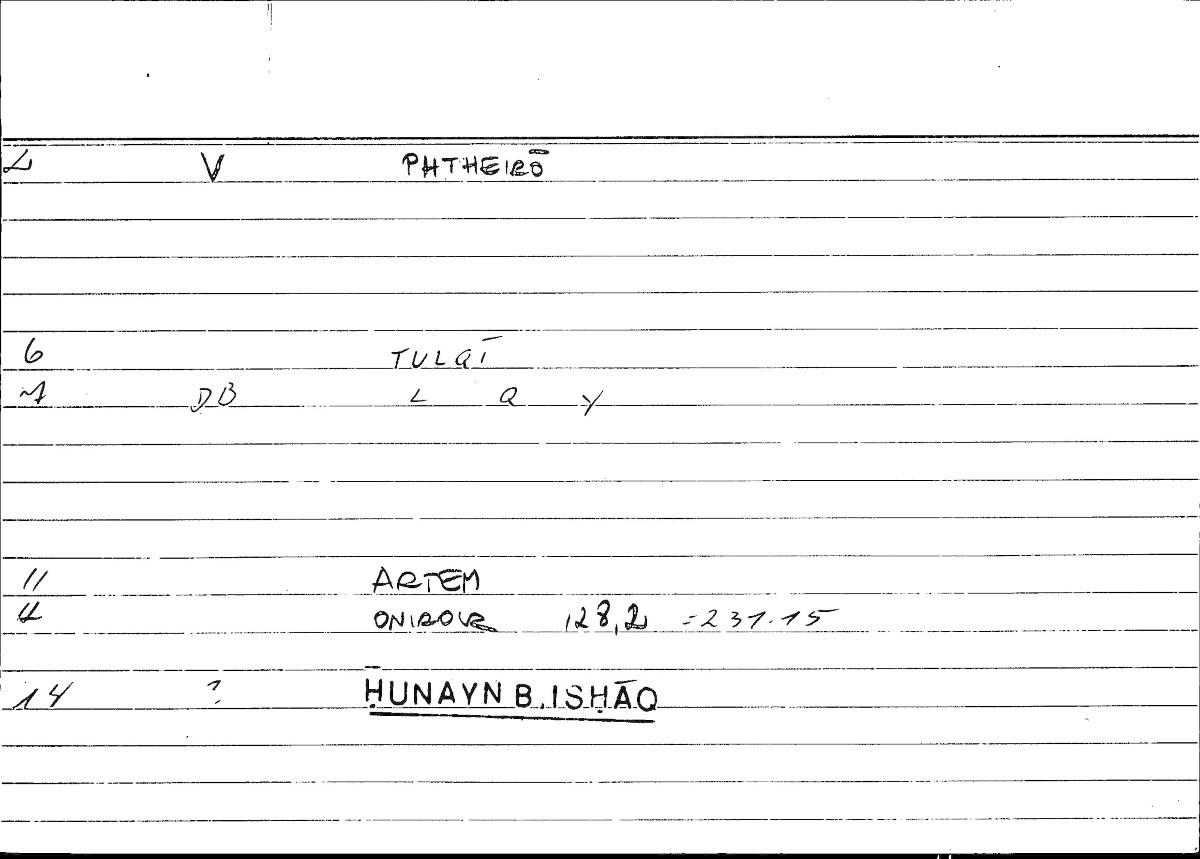 2 V PHTHEIRŌ
6 TULQĪ
7 DB L Q Y
11 ARTEM
12 ONIROCR 128,2 =231.15
14 ? ḤUNAYN B. ISḤĀQ